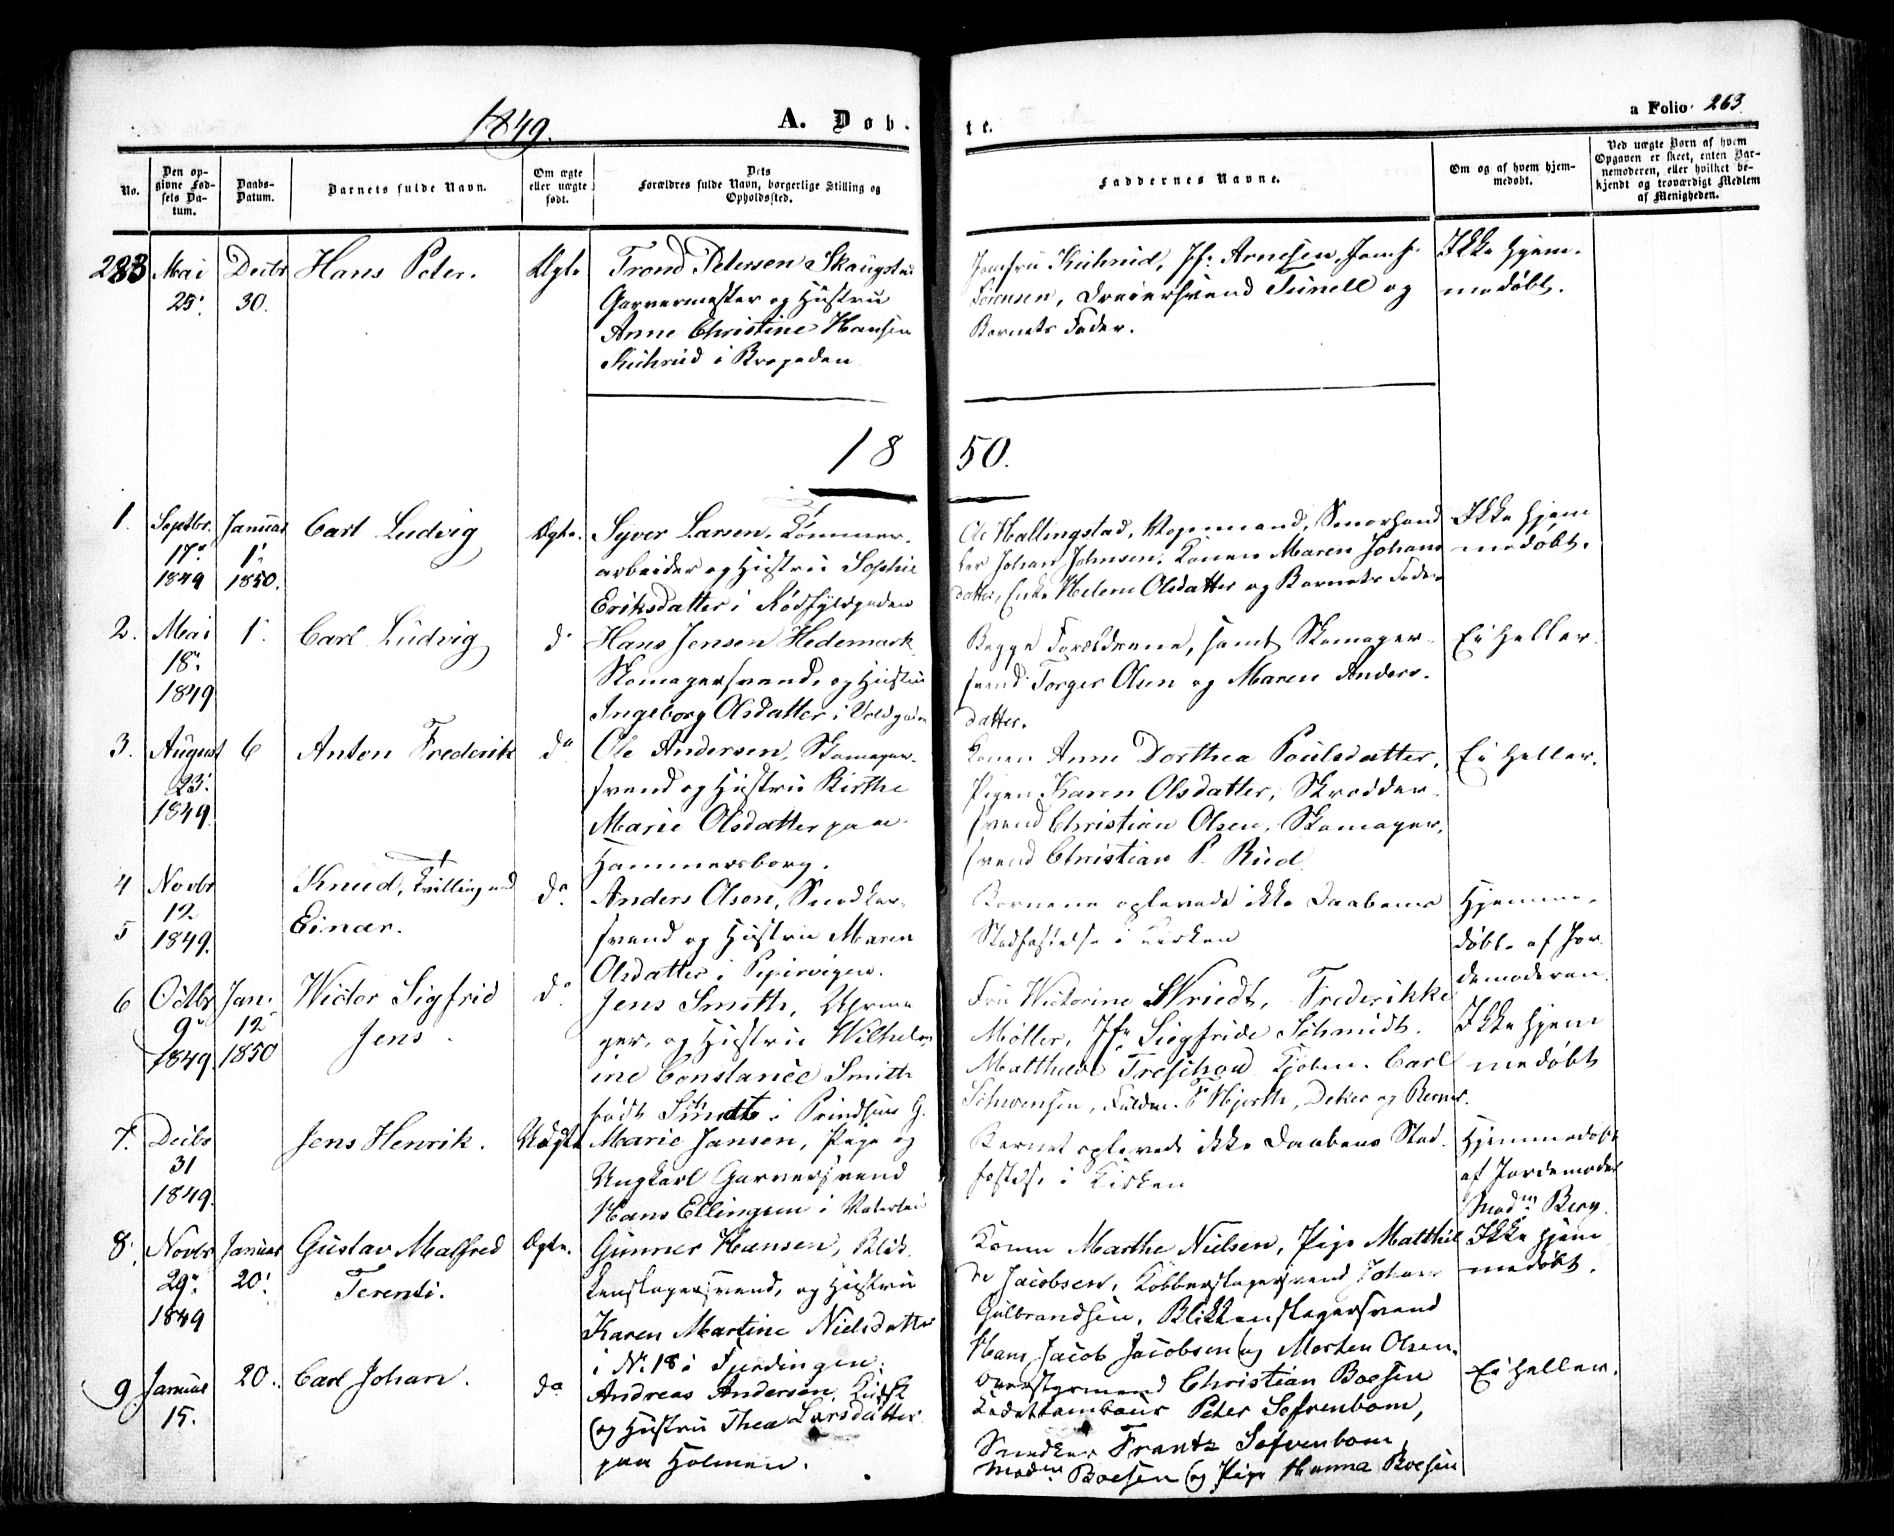 1849.
A. Døb-
te.
a Folio 263
No.
Den opgivne Fødsels Datum.
Daabs-Datum.
Barnets fulde Navn.
Om ægte eller uægte født.
Dets Forældres fulde Navn, borgerlige Stilling og Opholdssted.
Faddernes Navne.
Om og af hvem hjemmedøbt.
Ved uægte Børn af hvem Opgaven er skeet, enten Barnemoderen, eller hvilket bekjendt og troværdigt Medlem af Menigheden.
283 Mai 25. Decbr 30. Hans Peter. Ægte
Trond Petersen Skaugstad
Garvermester og Hustru
Anne Christine Hansen
i Brogaden
Jomfru Jfr. Arnesen, Jomfr.
Sørensen, Dreiersvend Tunell og
Barnets Fader.
Ikke hjem-
medøbt.
1850.
1. Septbr. 17. 1849 Januar 1. 1850. Carl Ludvig Ægte.
Syver Larsen, Tømmer-
arbeider og Hustru Sophie
Eriksdatter i Rødfyldgaden
Ole Hallingstad, Vognmand, Smørhand
ler Johan Johnsen, Konen Maren Johans
datter, Enke Helene Olsdatter og Barnets Fader
Ikke hjem
medøbt.
2. Mai 18. 1849 1. Carl Ludvig do
Hans Jensen Hedemark
Skomagersvend, og Hustru
Ingeborg Olsdatter i Voldgaden
Begge Forældrene, samt Skomager-
svend Torger Olsen og Maren Anders-
datter.
Ei heller.
3. August 23. 1849. 6 Anton Frederik do
Ole Andersen, Skomager-
svend og Hustru Birthe
Marie Olsdatter paa
Hammersborg.
Konen Anne Dorthea Poulsdatter,
Pigen Karen Olsdatter, Skrædder-
svend Christian Olsen, Skomager-
svend Christian P. Rud
Ei heller.
4 Novbr 12 1849. Knud, Tvilling med
5 Einar. do.
Anders Olsen, Snedker-
svend og Hustru Maren
Olsdatter i Pipervigen.
Børnene oplevede ikke Daabens
Stadfæstelse i Kirken
Hjemme-
døbte af Jor-
demoderen.
6 Octbr 9 1849. Jan. 12 1850 Victor Sigfrid
Jens. do.
Jens Smith, Uhrma
ger, og Hustru Wilhelm
ine Constance Smith
født i Prindsens G.
Fru Victorine Wriedt, Frederikke
Møller, Jfr. Siegfride Schmidt.
Matthæus Treschow Kjøbm. Carl
Schwensen, Fuldm. Hjorth,
Ikke hjem
medøbt
7. Decbr 31 1849. Jens Henrik. Uægte
Marie Jansen, Pige og
Ungkarl Garversvend
Hans Ellingsen i Vaterland
Barnet oplevede ikke Daabens Stad-
fæstelse i Kirken
Hjemmedøbt
af Jordemoder
Madm Berg.
8. Novbr 29 1849 Januar 20. Gustav Malfred
Terenti. Ægte.
Gunner Hansen, Blik-
kenslagersvend, og Hustru
Karen Martine Nielsdatter
i No. 18 i Fjerdingen.
Konen Marthe Nielsen, Pige Mathil
de Jacobsen, Kobberslagersvend Johan
Gulbrandsen, Blikkenslagersvend
Hans Jacob Jacobsen og Morten Olsen.
Ikke hjem
medøbt.
9 Januar 15. 20. Carl Johan. do
Andreas Andersen, Kudsk
og Hustru Thea Larsdatter
paa Holmen.
Overstyrmand Christian Boesen
Kadettambour Peter Sofrenbom,
Snedker Frantz Sofrenbom,
Madm Boesen og Pige Hanna Boesen
Ei heller.